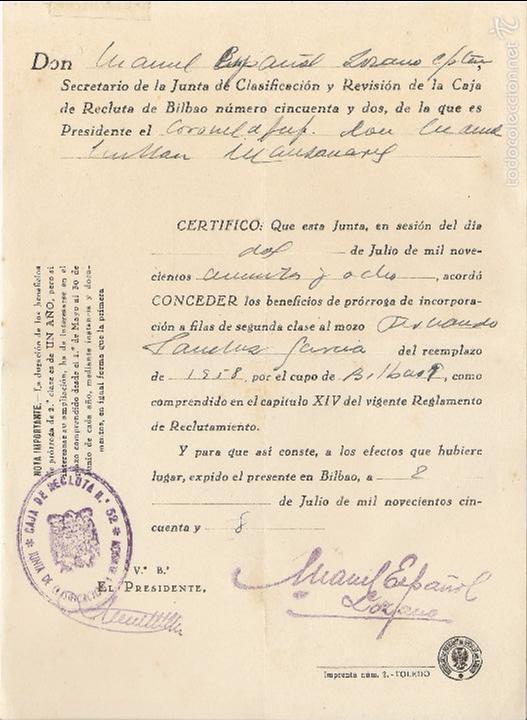 Don Manuel Español Lozano Cptan,
Secretario de la Junta de Clasificación y Revisión de la Caja
de Recluta de Bilbao número cincuenta y dos, de la que es
Presidente el Coronel d Inf. don Manuel
Manzanares
CERTIFICO: Que esta Junta, en sesión del día
dos de Julio de mil nove-
cientos cincuenta y ocho, acordó
CONCEDER los beneficios de prórroga de incorpora-
ción a filas de segunda clase al mozo Fernando
Sanchez Garcia del reemplazo
de 1958, por el cupo de Bilbao, como
comprendido en el capítulo XIV del vigente Reglamento
de Reclutamiento.
Y para que así conste, a los efectos que hubiere
lugar, expido el presente en Bilbao, a 2
de Julio de mil novecientos cin-
cuenta y 8
V.º B.º
EL PRESIDENTE,
Manuel Español
Lozano
NOTA IMPORTANTE.—La duración de los beneficios
de prórroga de 2.ª clase es de UN AÑO, pero si
interesase su ampliación, ha de interesarse en el
plazo comprendido desde el 1.º de Mayo al 30 de
Junio de cada año, mediante instancia y docu-
mentos, en igual forma que la primera
CAJA DE RECLUTA N.º 52
JUNTA DE CLASIFICACION
Imprenta núm. 2.-TOLEDO
todocoleccion.net